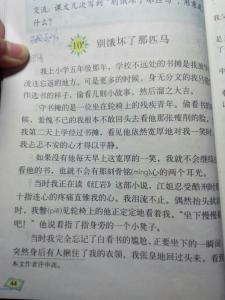 交流:课文几次写到“别饿坏了那
什么?
10 别饿坏了那匹马
我上小学五年级那年,学校不远处的书摊是我放学
流连忘返的地方。可是更多的时候,身无分文的我只
作选书的样子,偷看几则小故事,然后溜之大吉。
守书摊的是一位坐在轮椅上的残疾青年。偷看
候,羞愧不已的我根本不敢回头去看他那张瘦削的脸。
我第二天上学经过书摊,看见他依然宽厚地对我一笑时,
我忐忑不安的心才得以平静。
如果没有他每天早上这宽厚的一笑,我就不会继续
看他的书,也就不会有那刻骨铭(míng)心的两个耳光。
当时我正在读《红岩》这部小说,江姐忍受酷刑时
十指连心的疼痛直锥我的心。我泪流不止。偶然抬头
时,我瞥(piē)见轮椅上的他正定定地看着我。“坐下慢慢
吧!”他说着指了指身旁的一个小凳子。
当时我完全忘记了白看书的尴尬,正要坐下的一瞬
突然身后有人揪住了我的衣领。我张皇地回过头来,看
本文作者许申高。
44